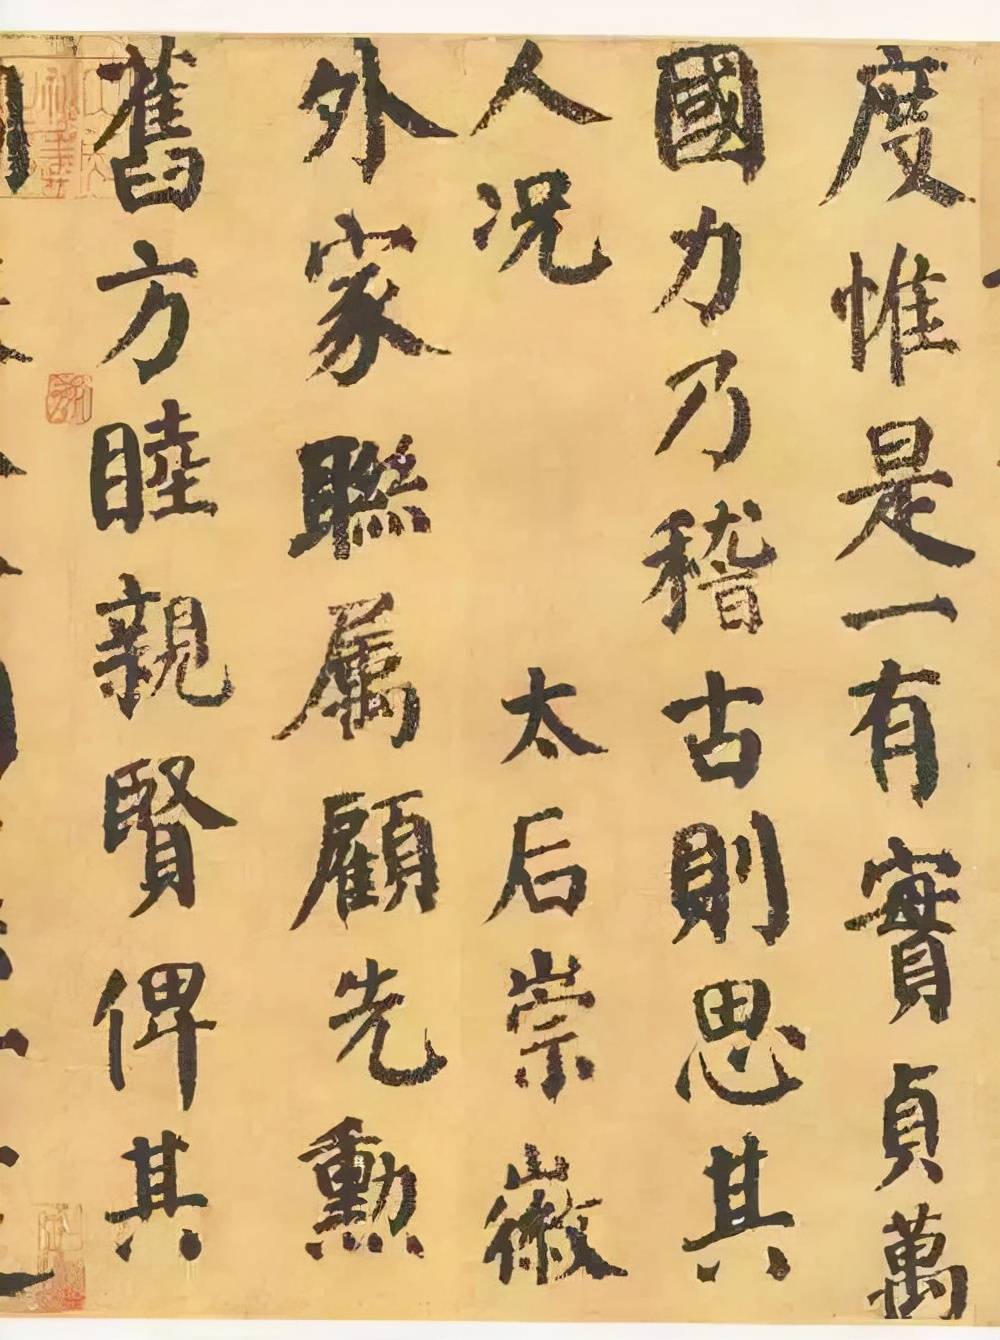 度惟是一有實貞萬
國力乃稽古則思其
人況　太后崇徽
外家聯屬顧先勳
舊方睦親賢俾其